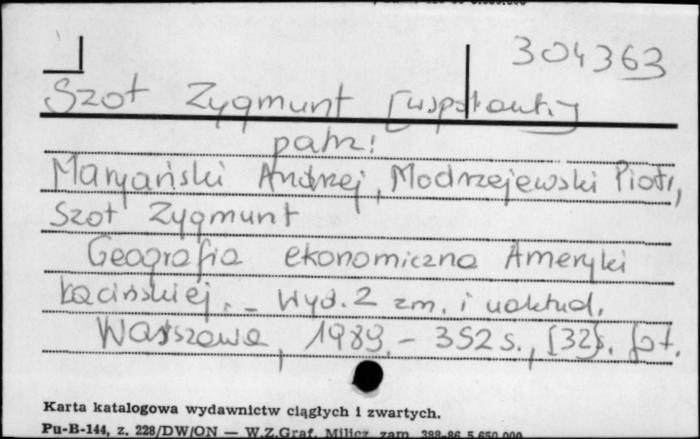 304363
Szot Zygmunt [współaut.]
patrz:
Maryański Andrzej, Modrzejewski Piotr,
Szot Zygmunt
Geografia ekonomiczna Ameryki
Łacińskiej. - Wyd. 2 zm. i uaktual.
Warszawa, 1989. - 352 s., [32]s. fot.
Karta katalogowa wydawnictw ciągłych i zwartych.
Pu-B-144, z. 228/DW/ON — W.Z.Graf. Milicz zam. 388-86 5.650.000